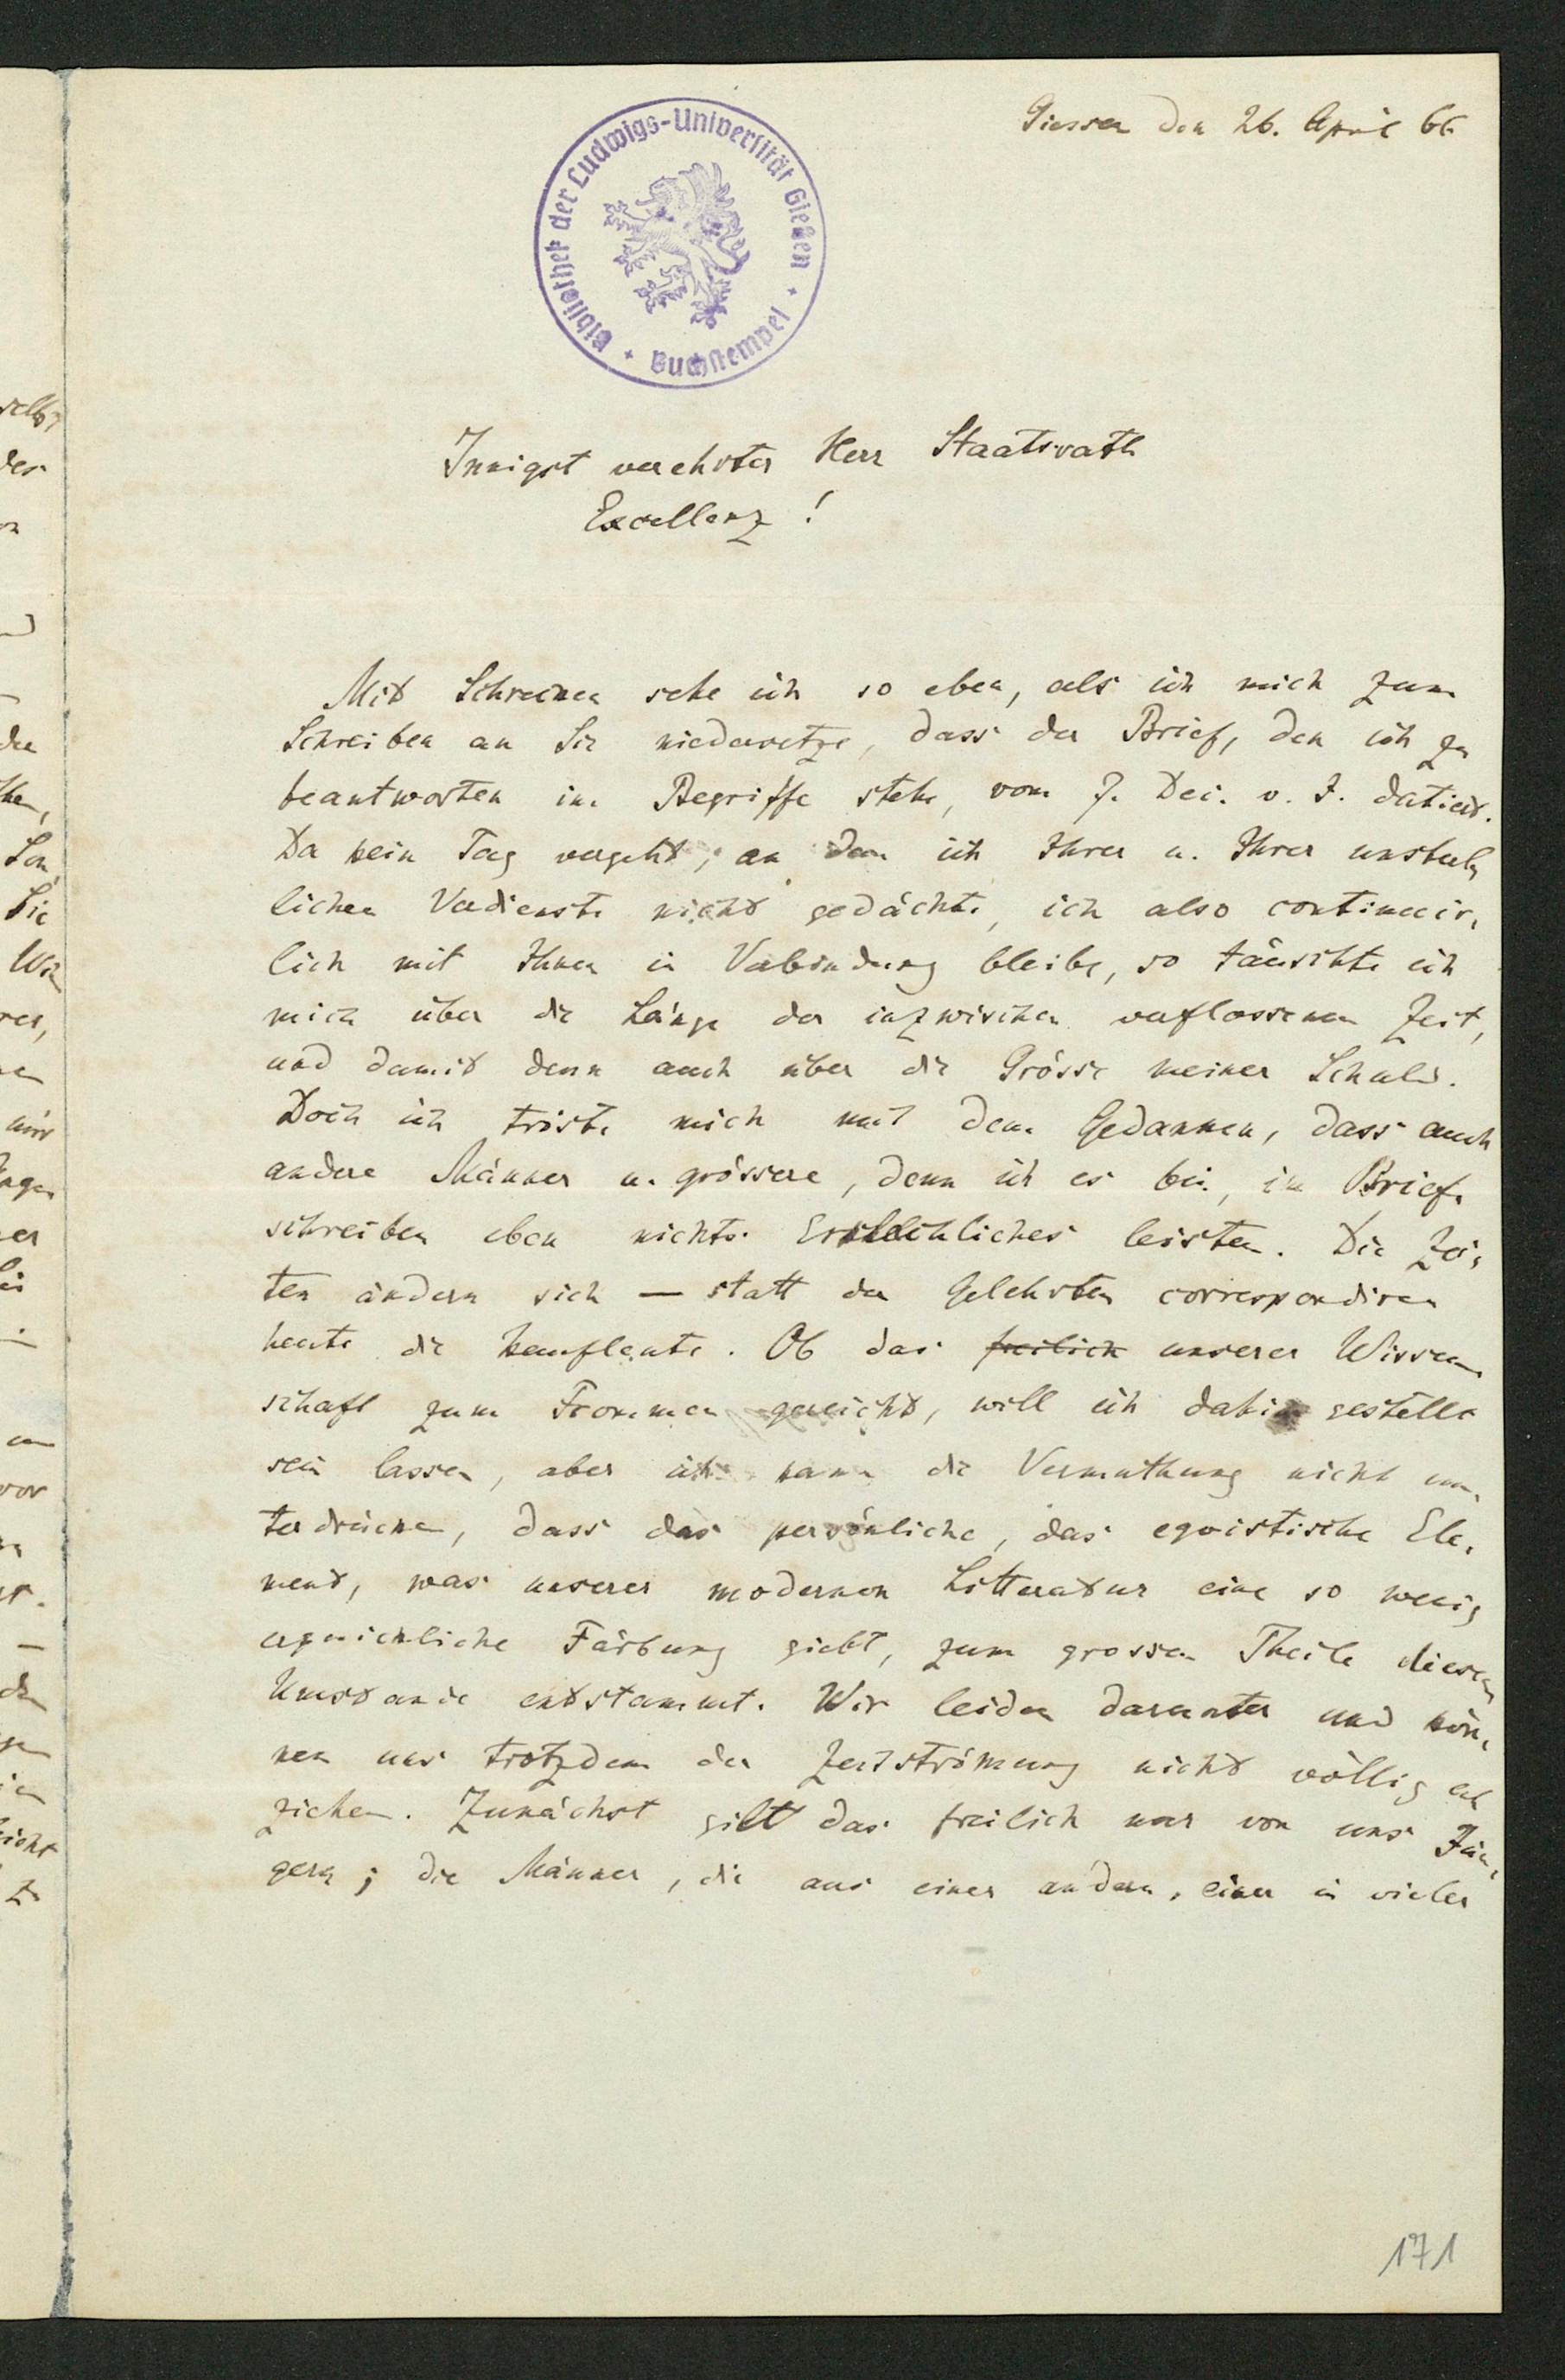 Giessen den 26. April 66
Bibliothek der Ludwigs-Universität Gießen + Buchstempel +
Innigst verehrter Herr Staatsrath
Excellenz!
Mit Schrecken sehe ich so eben, als ich mich zum
Schreiben an Sie niedersetze, dass der Brief, den ich zu
beantworten im Begriffe stehe, vom 7. Dec. v. J. datiert.
Da kein Tag vergeht, an dem ich Ihrer u. Ihrer unsterb
lichen Verdienste nicht gedächte, ich also continuir,
lich mit Ihnen in Verbindung bleibe, so täuschte ich
mich über die Länge der inzwischen verflossenen Zeit,
und damit denn auch über die Grösse meiner Schuld.
Doch ich tröste mich mit dem Gedanken, dass auch
andere Männer u. grössere, denn ich es bin, im Brief,
schreiben eben nichts Erkleckliches leisten. Die Zei,
ten ändern sich — statt der Gelehrten correspondiren
heute die Kaufleute. Ob das freilich unserer Wissen,
schaft zum Frommen gereicht, will ich dahin gestellt
sein lassen, aber ich kann die Vermuthung nicht un,
terdrücken, dass das persönliche, das egoistische Ele,
ment, was unserer modernen Litteratur eine so wenig
erquickliche Färbung giebt, zum grossen Theile diesem
Umstande entstammt. Wir leiden darunter und kön,
nen uns trotzdem der Zeitströmung nicht völlig ent
ziehen. Zunächst gilt das freilich nur von uns Jün,
gern; die Männer, die aus einer andern, einer in vieler
171
selbst
der
Son
Sie
mir
vor
nicht